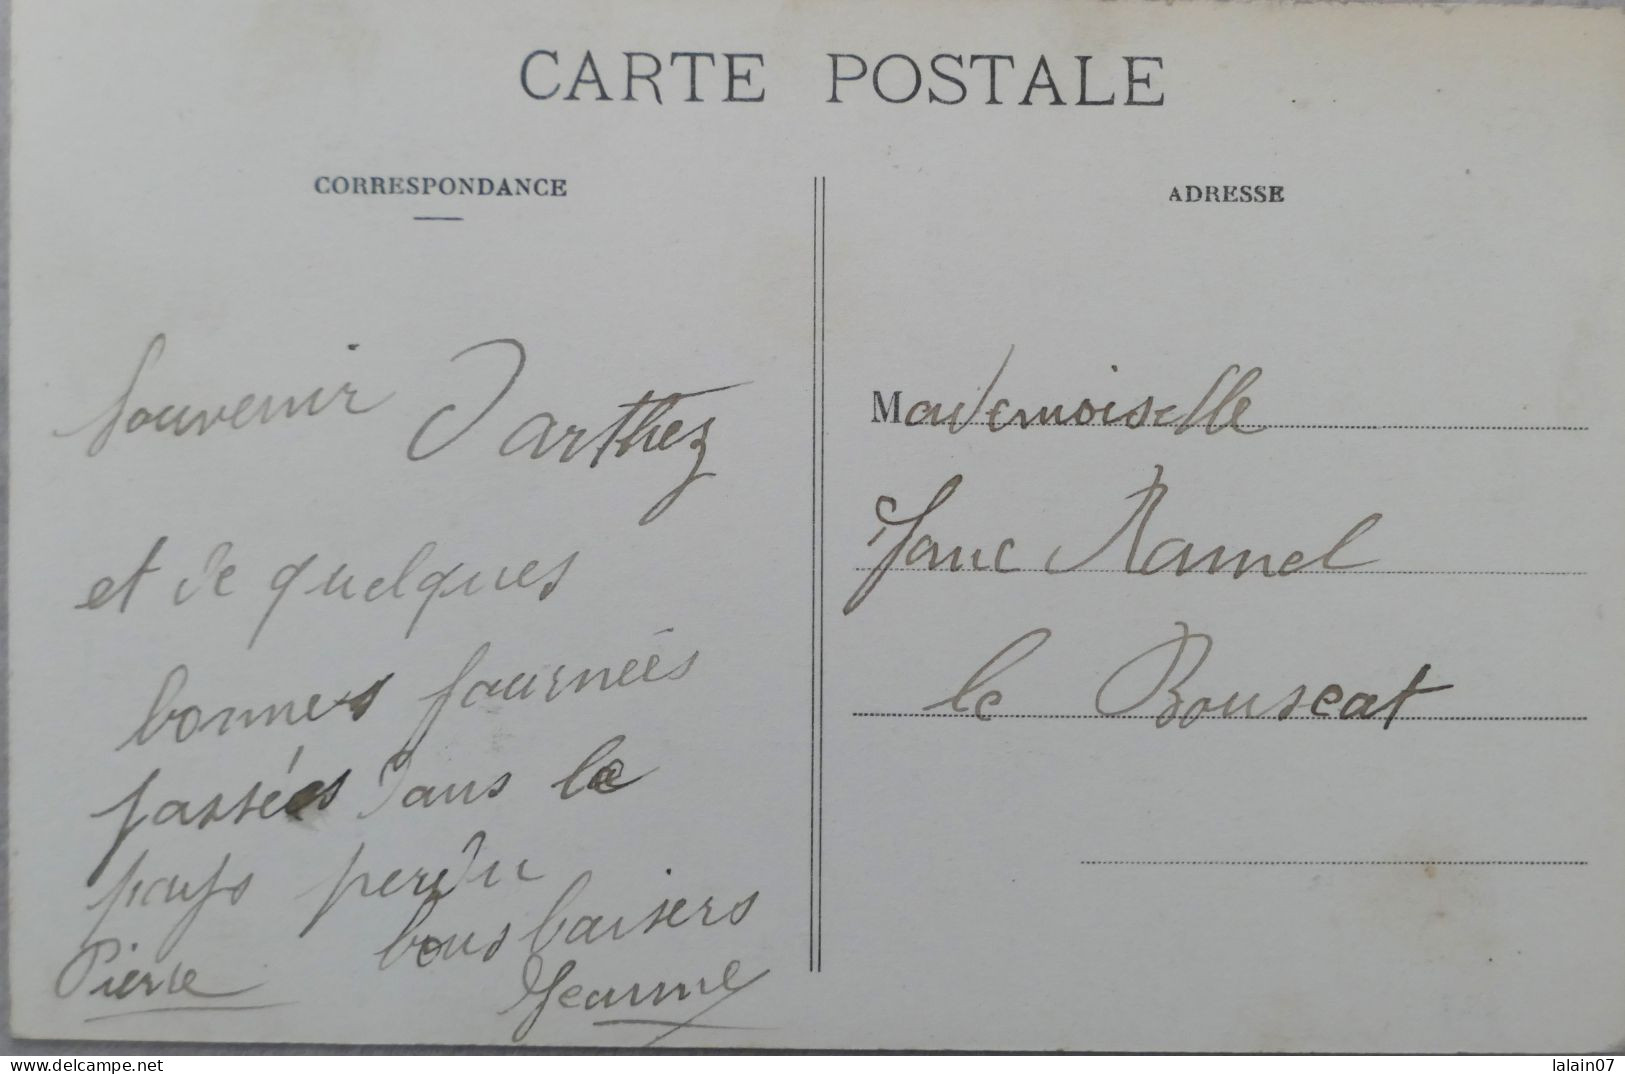 CARTE POSTALE
CORRESPONDANCE
Souvenir Darthez
et de quelques
bonnes journées
passées dans le
pays perdu
bons baisers
Pierre
Jeanne
ADRESSE
Mademoiselle
Jane Ramel
le Bouscat
lalain07
delcampe.net